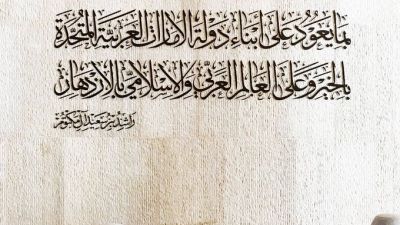 بما يعود على أبناء دولة الإمارات العربية المتحدة
بالخير وعلى العالم العربي والإسلامي بالازدهار
راشد بن سعيد آل مكتوم